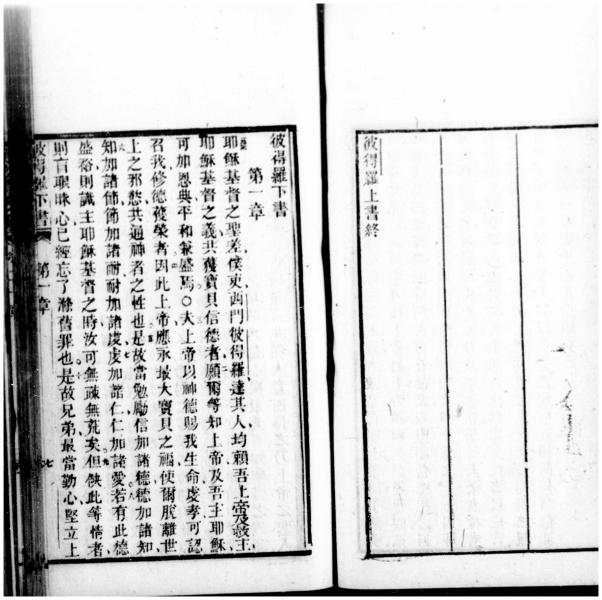 彼得羅上書終
彼得羅下書
第一章
耶穌基督之聖差僕吏西門彼得羅達其人均賴吾上帝及救主
耶穌基督之義共獲寶貝信德者願爾等知上帝及吾主耶穌
可加恩典平和兼盛焉〇夫上帝以神德賜我生命虔孝可認
召我修德獲榮者因此上帝應承最大寶貝之福使爾脫離世
上之邪慾共通神者之性也是故當勉勵信加諸德德加諸知
知加諸節節加諸耐耐加諸虔虔加諸仁仁加諸愛若有此德
盛裕則識主耶穌基督之時汝可無疎無荒矣但缺此等情者
則盲眼昧心已經忘了滌舊罪也是故兄弟最當勤心堅立上
彼得羅下書 第一章 七